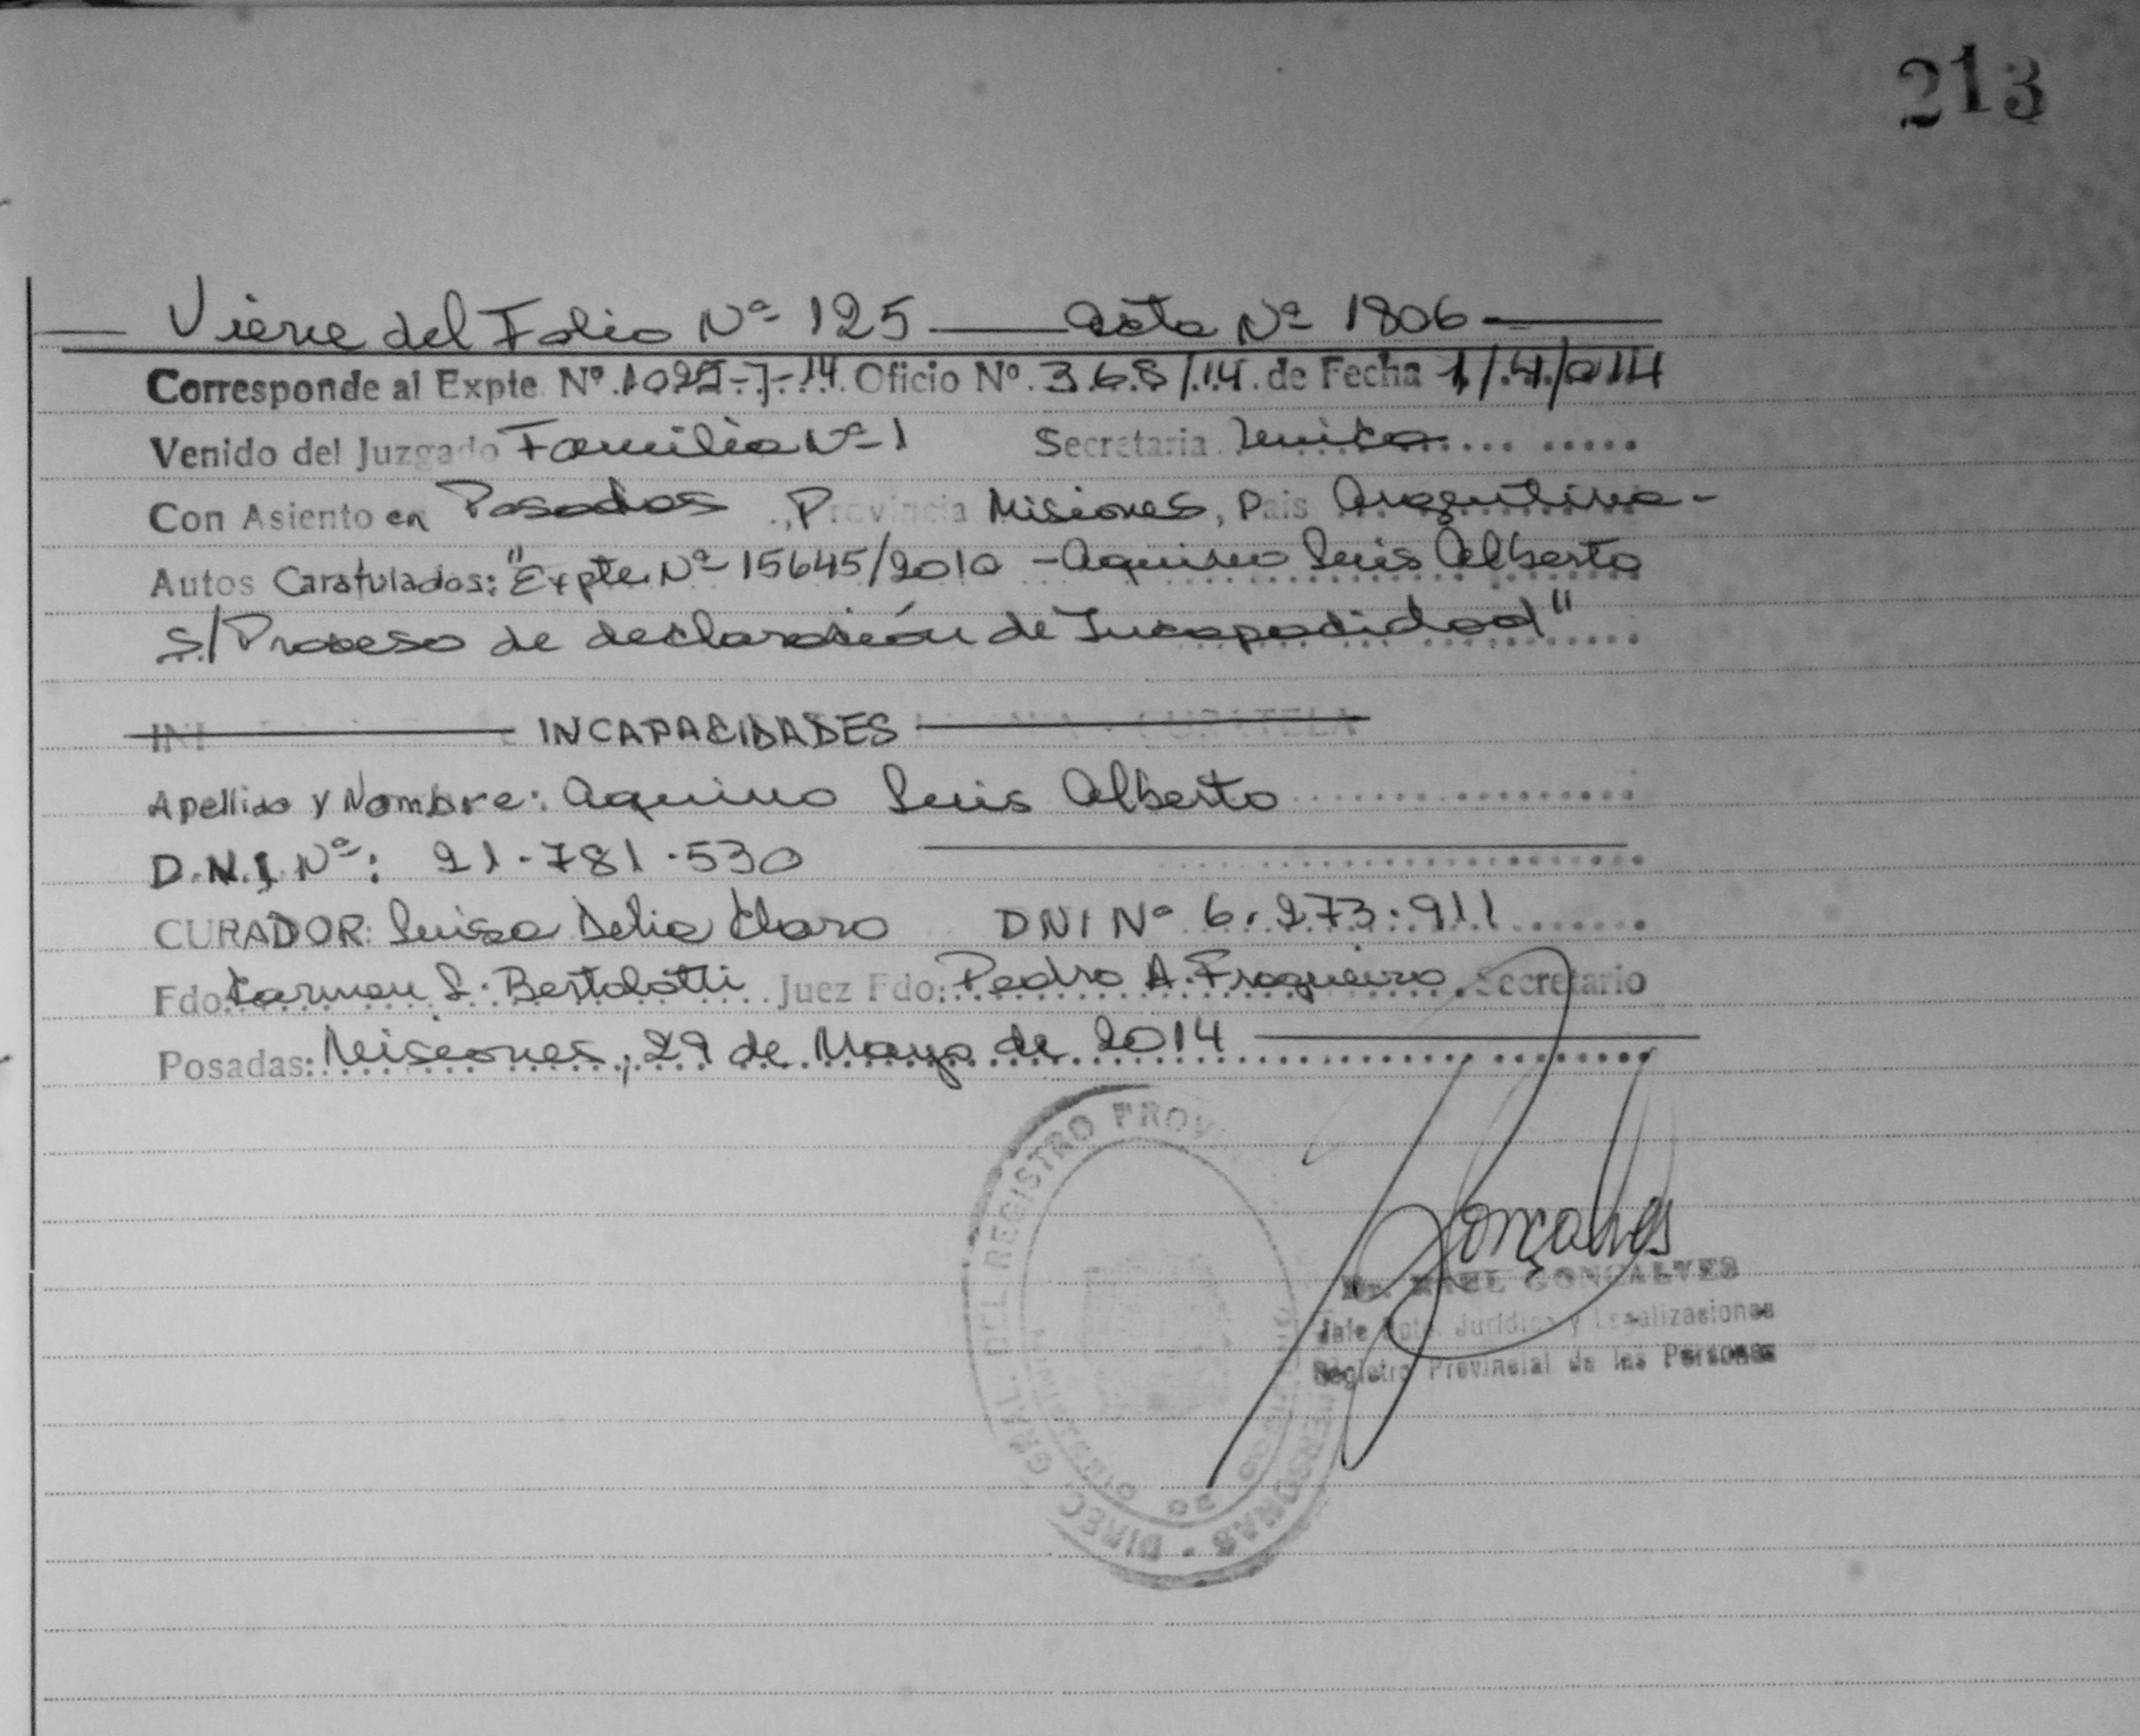 213
Viene del Folio Nº 125 — acta Nº 1806 —
Corresponde al Expte Nº 1025-J-14. Oficio Nº 368/14. de Fecha 1/4/014
Venido del Juzgado Familia Nº 1 Secretaria Unica
Con Asiento en Posadas, Provincia Misiones, Pais Argentina-
Autos Caratulados: "Expte. Nº 15645/2010 - Aquino Luis Alberto
s/ Proceso de declaración de Incapacidad"
INCAPACIDADES
Apellido y Nombre: Aquino Luis Alberto
D.N.I Nº: 21.781.530
CURADOR: Luisa Delia Claro DNI Nº 6.273.911
Fdo. Carmen L. Bertolotti Juez Fdo: Pedro A. Fragueiro. Secretario
Posadas: Misiones, 29 de Mayo de 2014
DIREC. GRAL. DEL REGISTRO PROV. PERSONAS
Gonçalves
GONCALVES
Jefe Dpto. Jurídico y Legalizaciones
Registro Provincial de las Personas